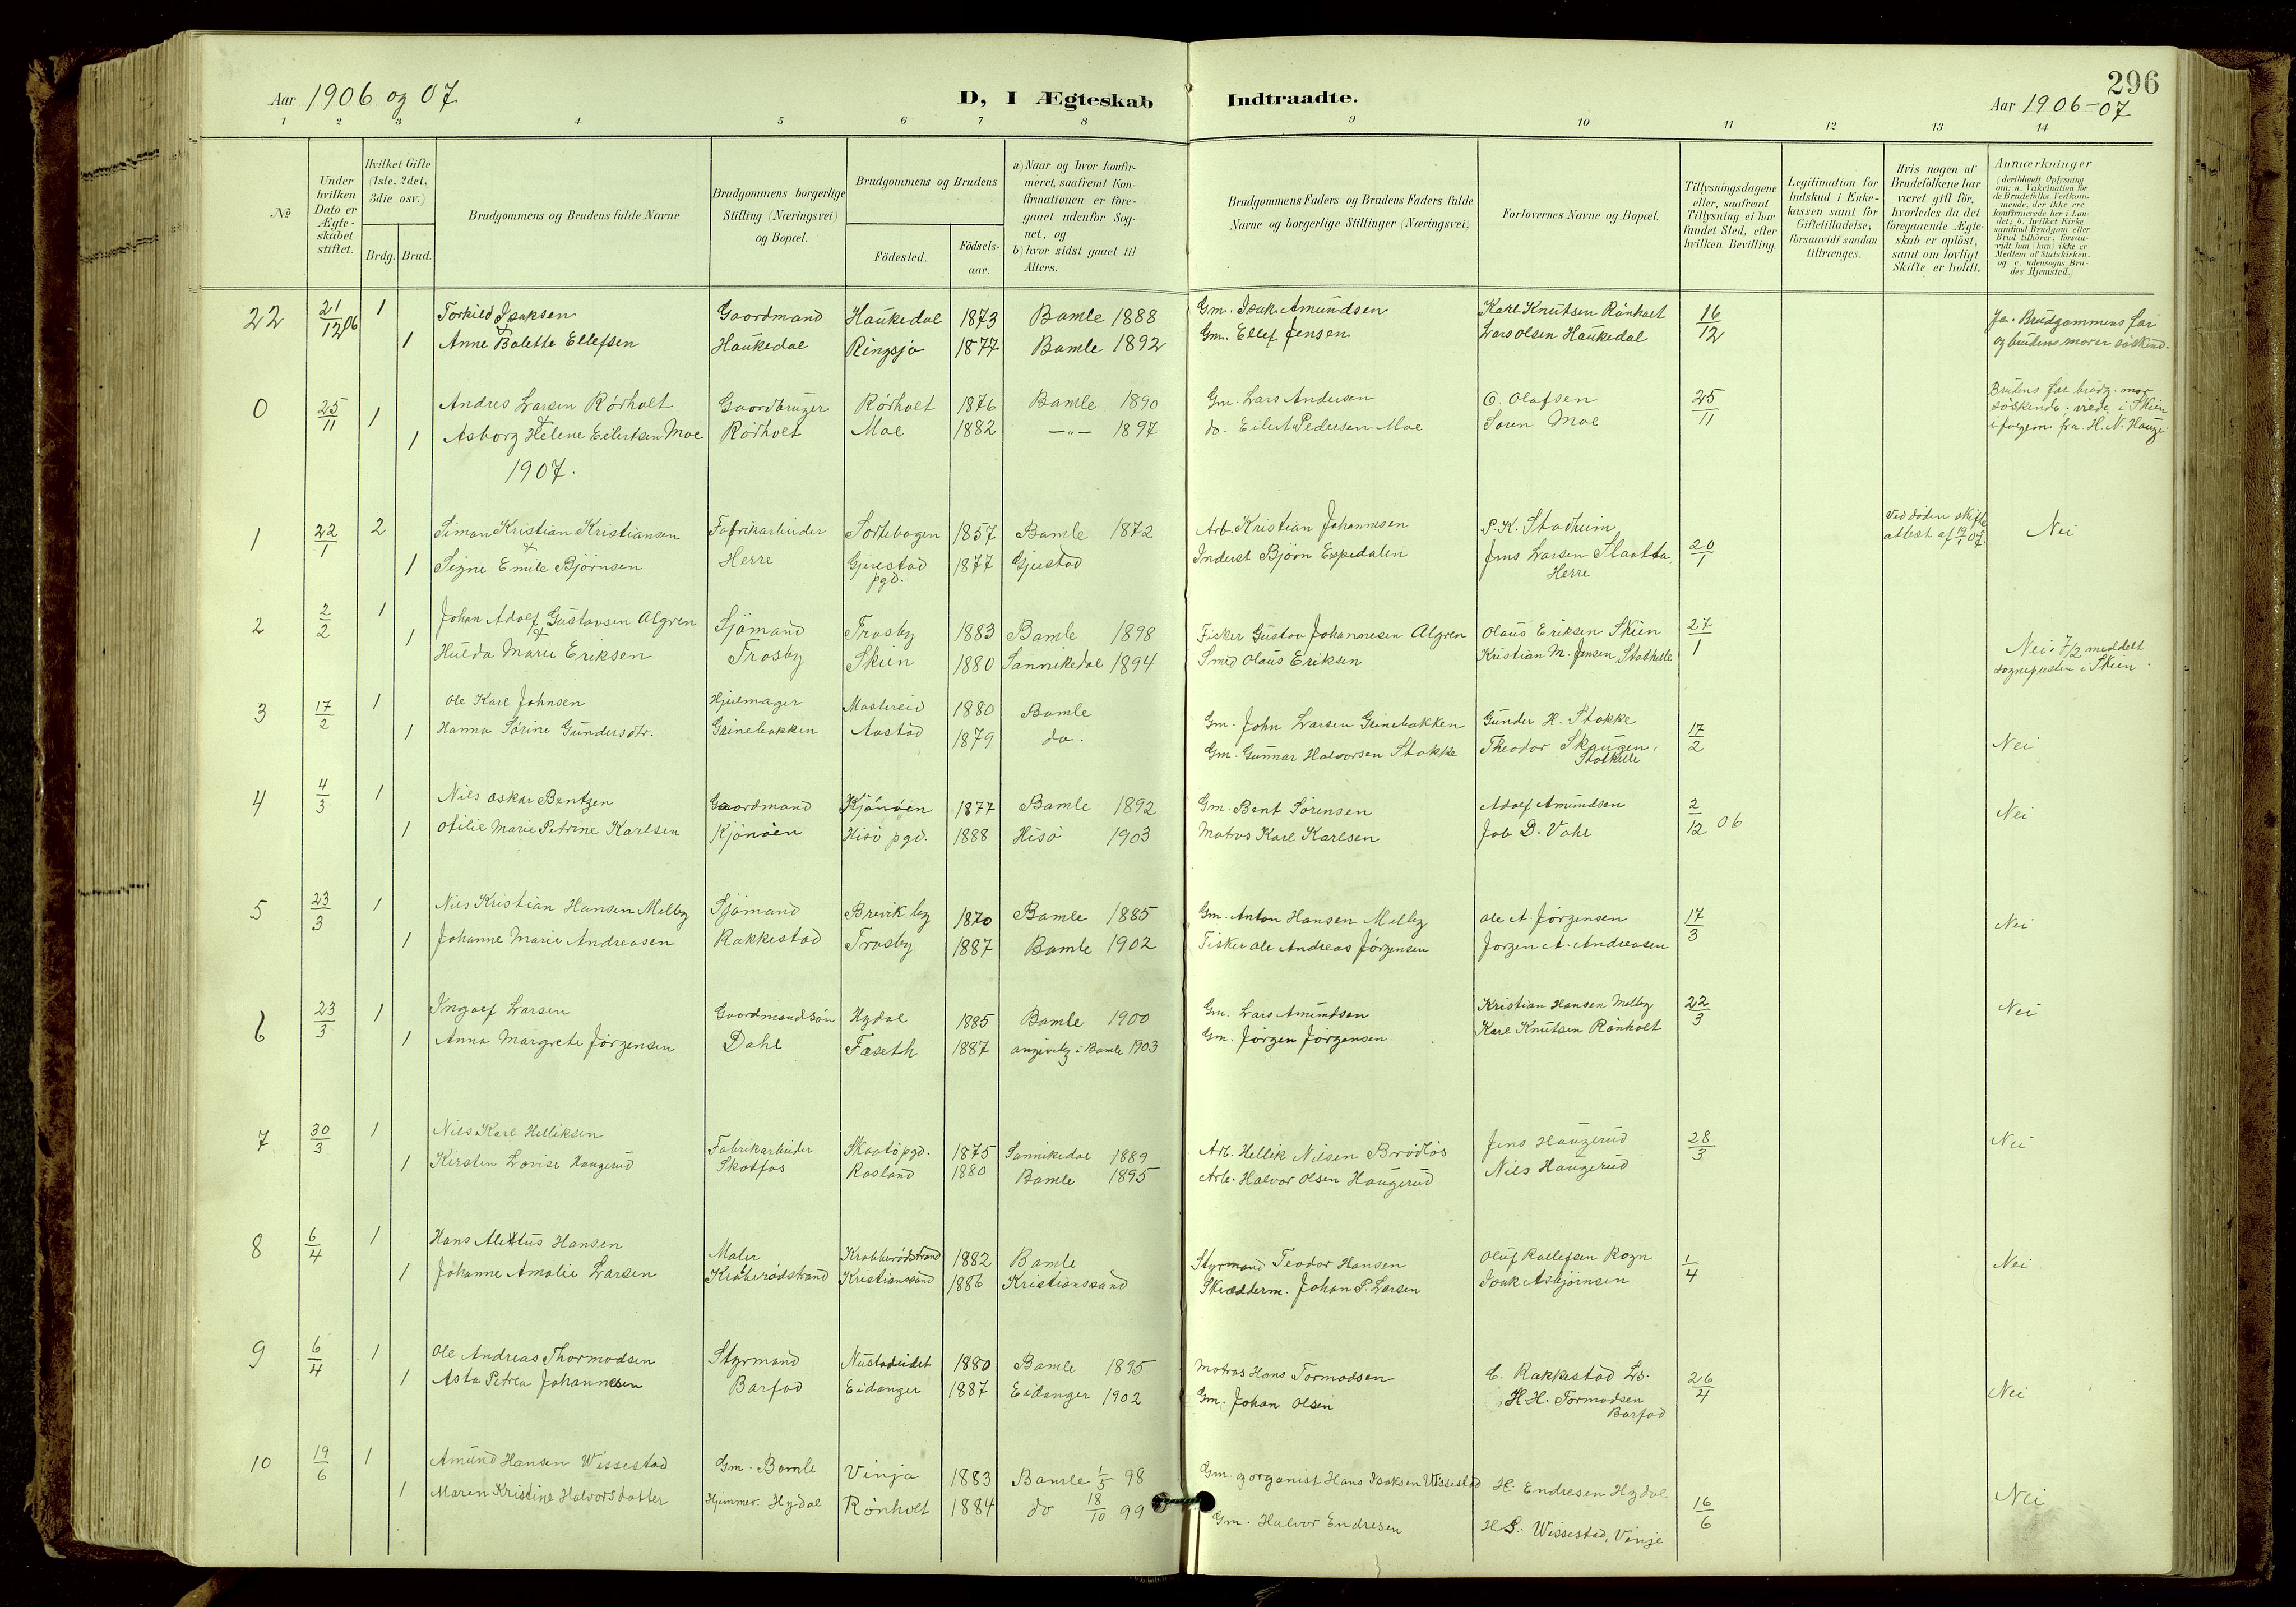 296
Aar 1906 og 07
D, I Ægteskab Indtraadte.
Aar 1906-07
1 2 3 4 5 6 7 8 9 10 11 12 13 14
No
Under hvilken Dato er Ægteskabet stiftet.
Hvilket Gifte (1ste, 2det, 3die osv.)
Brdg. Brud.
Brudgommens og Brudens fulde Navne
Brudgommens borgerlige Stilling (Næringsvei) og Bopæl.
Brudgommens og Brudens
Födested.
Födsels-aar.
a) Naar og hvor konfirmeret, saafremt Konfirmationen er foregaaet udenfor Sognet, og
b) hvor sidst gaaet til Alters.
Brudgommens Faders og Brudens Faders fulde Navne og borgerlige Stillinger (Næringsvei)
Forlovernes Navne og Bopæl.
Tillysningsdagene eller, saafremt Tillysning ei har fundet Sted, efter hvilken Bevilling.
Legitimation for Indskud i Enkekassen samt for Giftetilladelse, forsaavidt saadan tiltrænges.
Hvis nogen af Brudefolkene har været gift för, hvorledes da det foregaaende Ægteskab er oplöst, samt om lovligt Skifte er holdt.
Anmærkninger (deriblandt Oplysning om: a. Vakcination för de Brudefolks Vedkommende, der ikke ere konfirmerede her i Landet; b. hvilket Kirkesamfund Brudgom eller Brud tilhörer, forsaavidt han (hun) ikke er Medlem af Statskirken. og c. udensogns Brudes Hjemsted.)
22 21/12 06 1 Torkild Isaksen Gaardmand Haukedal 1873 Bamle 1888 Gm. Isak Amundsen Karl Knutsen Rönholt 16/12 Ja. Brudgommens far
& 1 Anne Bolette Ellefsen Haukedal Ringsjø 1877 Bamle 1892 Gm. Ellef Jensen Lars Olsen Haukedal og brudens morer söskend.
0 25/11 1 Andres Larsen Rörholt Gaardbruger Rörholt 1876 Bamle 1890 Gm. Lars Andersen O. Olafsen 25/11 Brudens far brudg. mor
& 1 Asborg Helene Eilertsen Moe Rörholt Moe 1882 —"— 1897 do. Eilert Pedersen Moe Soren Moe söskende, viede i Skien
H. N. Hauge.
1907.
1 22/1 2 Simon Kristian Kristiansen Fabrikarbeider Sortebogen 1857 Bamle 1872 Arb. Kristian Johannesen P. K. Stadheim Ved döden skifte Nei
& 1 Signe Emilie Björnsen Herre Gjerestad pgd. 1877 Gjerstad Inderst Björn Espedalen Jens Larsen Slaatta, Herre 20/1 attest af
2 2/2 1 Johan Adolf Gustavsen Algren Sjömand Trosby 1883 Bamle 1898 Fisker Gustav Johannesen Algren Olaus Eriksen Skien 27/1 Nei. 7/2 meddelt
& 1 Hulda Marie Eriksen Trosby Skien 1880 Sannikedal 1894 Smed Olaus Eriksen Kristian M. Jensen, Stathelle sognepresten i Skien.
3 17/2 1 Ole Karl Johnsen Hjulmager Mostereid 1880 Bamle Gm. John Larsen Grinebakken Gunder H. Stokke 17/2 Nei
1 Hanna Sörine Gundersdtr. Grinebakken Aastad 1879 do. Gm. Gunnar Halvorsen Stokke Theodor Skaugen, Stathelle
4 4/3 1 Nils Oskar Bentzen Gaardmand Kjönöen 1877 Bamle 1892 Gm. Bent Sörensen Adolf Amundsen 2/12 06 Nei
1 Otilie Marie Petrine Karlsen Kjönöen Hisö pgd. 1888 Hisö 1903 Matros Karl Karlsen Job D. Vahl
5 23/3 1 Nils Kristian Hansen Melby Sjömand Brevik by 1870 Bamle 1885 Gm. Anton Hansen Melby Ole A. Jörgensen 17/3 Nei
1 Johanne Marie Andreasen Rakkestad Trosby 1887 Bamle 1902 Fisker Ole Andreas Jörgensen Jorgen A. Andreasen
6 23/3 1 Ingolf Larsen Gaardmandsön Hydal 1885 Bamle 1900 Gm. Lars Amundsen Kristian Hansen Melby 22/3 Nei
1 Anna Margrete Jörgensen Dahl Faseth 1887 angivelig i Bamle 1903 Gm. Jörgen Jörgensen Karl Knutsen Rönholt
7 30/3 1 Nils Karl Helliksen Fabrikarbeider Skaatö pgd. 1875 Sannikedal 1889 Arb. Hellik Nilsen Brödlös Jens Haugerud 28/3 Nei
1 Kirsten Lovise Haugerud Skotfos Rosland 1880 Bamle 1895 Arb. Halvor Olsen Haugerud Nils Haugerud
8 6/4 1 Hans Alektus Hansen Maler Krabberödstrand 1882 Bamle Styrmand Teodor Hansen Oluf Rollefsen Rogn 1/4 Nei
1 Johanne Amalie Larsen Krabberödstrand Kristianssand 1886 Kristianssand Skrædderm. Johan P. Larsen Isak Asbjörnsen
9 6/4 1 Ole Andreas Thormodsen Styrmand Nustadeidet 1880 Bamle 1895 Matros Hans Tormodsen C. Rakkestad Ls. 26/4 Nei
1 Asta Petrea Johannesen Barfod Eidanger 1887 Eidanger 1902 Gm. Johan Olsen H. H. Tormodsen Barfod
10 19/6 1 Amund Hansen Wissestad Gm. Bamle Vinja 1883 Bamle 1/5 98 Gm. g organist Hans Isaksen Wissestad H. Endresen Hydal 16/6 Nei
1 Maren Kristine Halvorsdatter Hjemmev. Hydal Rönholt 1884 do 18/10 99 Gm. Halvor Endresen H. S. Wissestad, Vinje